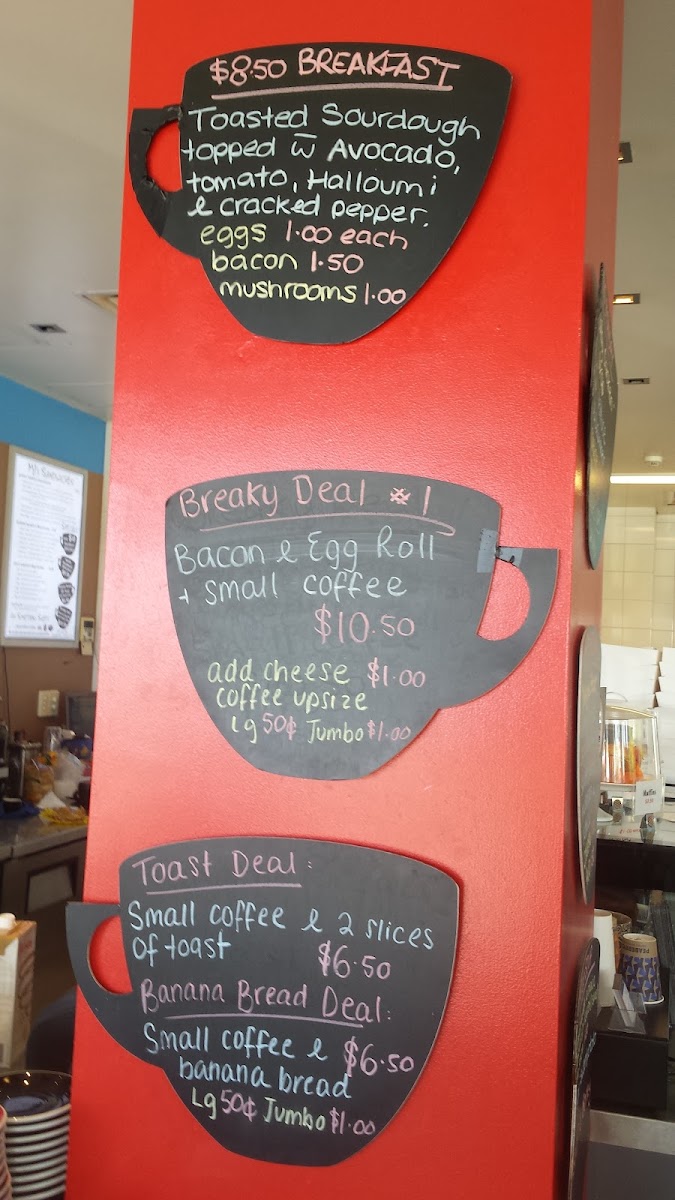 $8.50 BREAKFAST
Toasted Sourdough
topped w̅ Avocado,
tomato, Halloumi
& cracked pepper.
eggs 1.00 each
bacon 1.50
mushrooms 1.00
Breaky Deal # 1
Bacon & Egg Roll
+ small coffee
$10.50
add cheese $1.00
coffee upsize
Lg 50¢ Jumbo $1.00
Toast Deal:
Small coffee & 2 slices
of toast $6.50
Banana Bread Deal:
Small coffee & $6.50
banana bread
Lg 50¢ Jumbo $1.00
Muffins